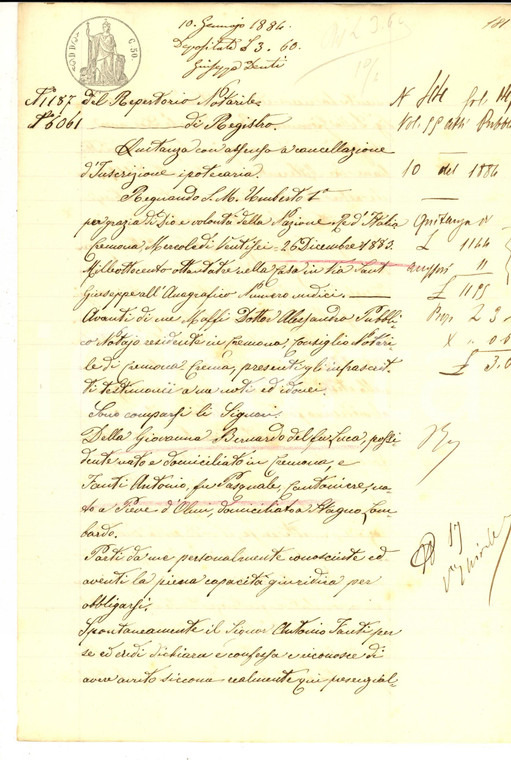 10. Gennajo 1884.
Depositate £ 3. 60.
Giuseppe Denti
C. 50
N° 1187 del Repertorio Notarile
N° 6061 di Registro.
Quitanza con assenso a cancellazione
d'Inscrizione ipotecaria.
Regnando S. M. Umberto 1°
per grazia di Dio e volontà della Nazione Re d'Italia
Cremona Mercoledì Ventisei = 26 Dicembre = 1883.
Milleottocento ottantatre nella Casa in Via Sant
Giuseppe all'Anagrafico Numero undici.
Avanti di me Maffi Dottor Alessandro Pubbli
co Notajo residente in Cremona, Consiglio Notari
le di Cremona Crema, presenti gl'infrascrit
ti testimonii a me noti ed idonei.
Sono comparsi li Signori.
Della Giovanna Bernardo del fu Luca, possi
dente nato e domiciliato in Cremona, e
Fanti Antonio, fu Pasquale, Cantoniere, na
to a Pieve d'Olmi, domiciliato a Stagno Lom
bardo.
Parti da me personalmente conosciute ed
aventi la piena capacità giuridica per
obbligarsi.
Spontaneamente il Signor Antonio Fanti per
se ed eredi dichiara e confessa e riconosce di
avere avuto siccome realmente qui presenzial-
Vol. 55 atti Pubbli
10 del 1884
Quitanza
£ 1144
11
£ 1155
£ 3.6